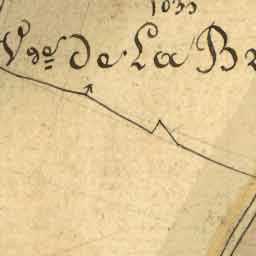 1033
Vge De La Br